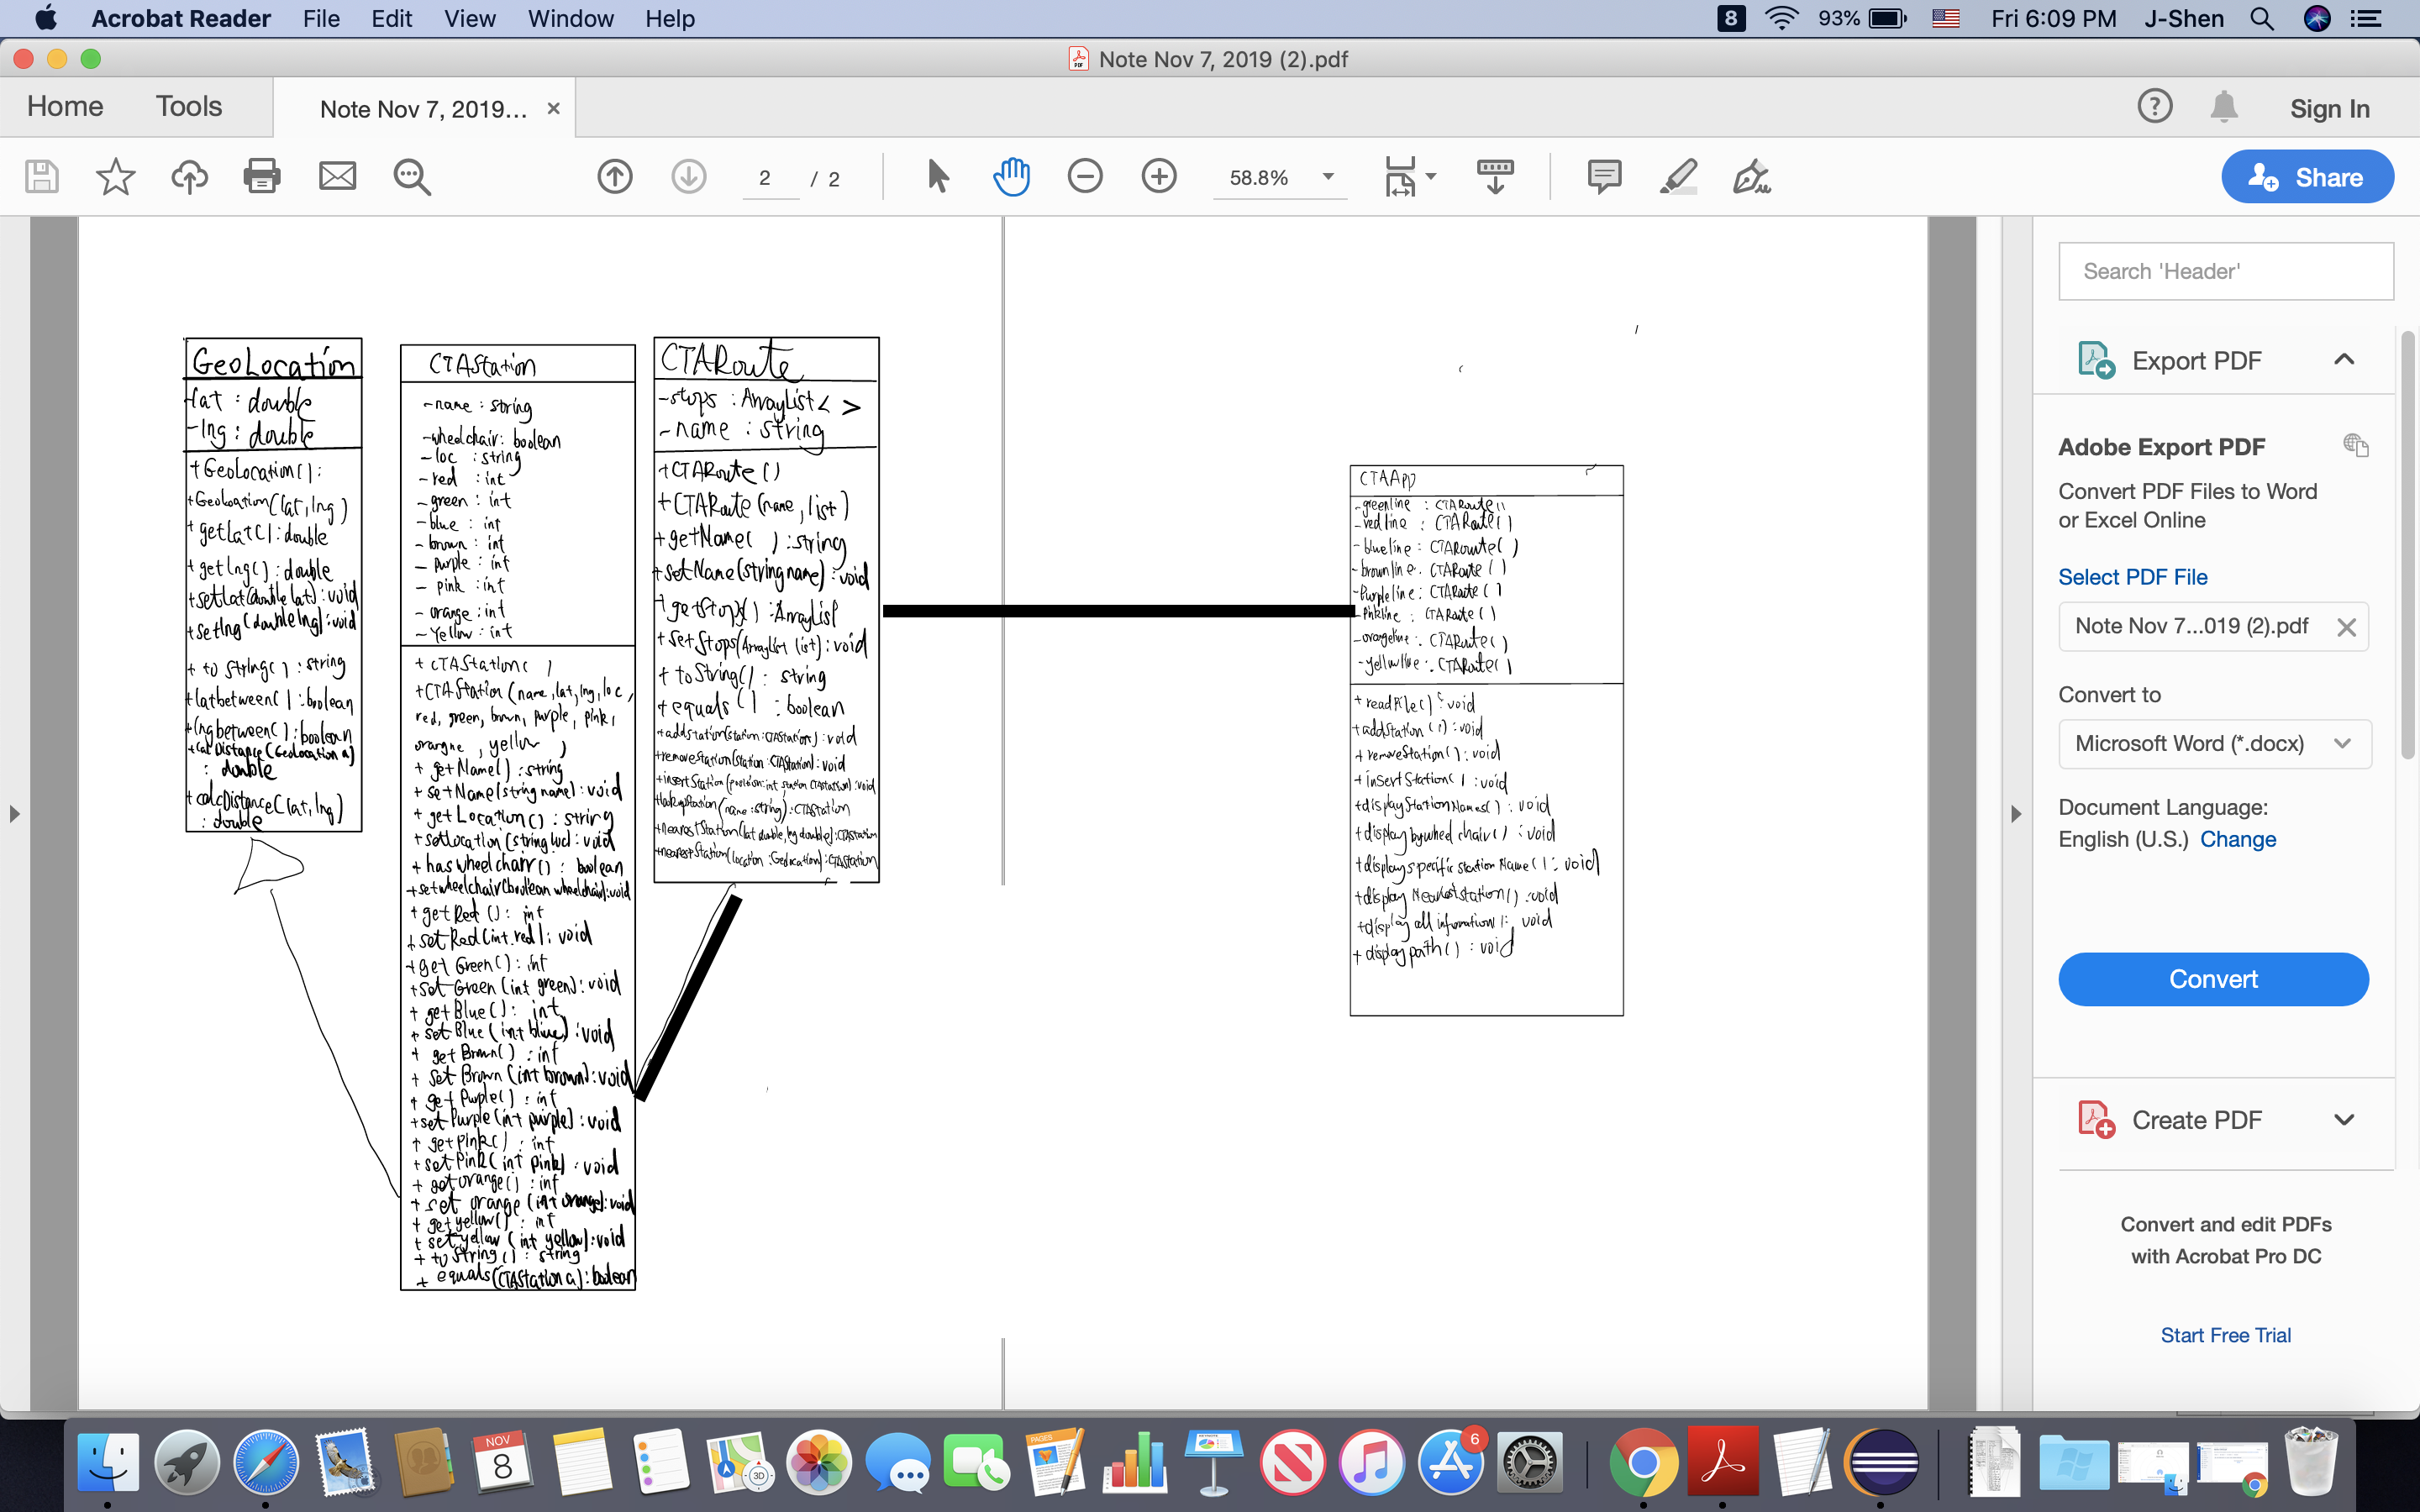 Acrobat Reader File Edit View Window Help
8 93% Fri 6:09 PM J-Shen
Note Nov 7, 2019 (2).pdf
Home Tools Note Nov 7, 2019... × Sign In
2 / 2 58.8% Share
GeoLocation
-lat : double
-lng : double
+GeoLocation():
+GeoLocation(lat, lng)
+getlat():double
+getlng(): double
+setlat(double lat): void
+setlng(double lng): void
+ to string() : string
+latbetween(): boolean
+lngbetween(): boolean
+calDistance(Geolocation a)
: double
+calcDistance(lat, lng)
: double
CTAStation
-name : string
-wheelchair: boolean
-loc : string
-red : int
-green : int
-blue : int
-brown : int
- purple : int
- pink : int
- orange : int
- yellow : int
+ CTAStation( )
+CTAStation(name, lat, lng, loc,
red, green, brown, purple, pink,
orangne, yellow )
+ getName() : string
+ setName(string name): void
+ getLocation() : string
+setlocation(string loc): void
+ haswheelchair() : boolean
+setwheelchair(boolean wheelchair): void
+getRed(): int
+setRed(int red): void
+get Green(): int
+set Green(int green): void
+ getBlue(): int
+ setBlue(int blue): void
+ getBrown() : int
+ set Brown(int brown): void
+ getPurple() : int
+setPurple(int purple): void
+ getpink() : int
+setPink(int pink) : void
+ getorange() : int
+ set orange(int orange): void
+ getyellow() : int
+ setyellow(int yellow): void
+ toString() : string
+ equals(CTAStation a): boolean
CTARoute
-stops : ArrayList< >
-name : string
+CTARoute()
+CTARoute(name, list)
+getName( ) : string
+setName(string name): void
+getStops() : ArrayList
+setStops(ArrayList list): void
+ toString() : string
+ equals() : boolean
+addstation(station: CTAStation): void
+removeStation(Station: CTAStation): void
+insertStation(position: int, station CTAStation): void
+lookupStation(name: string): CTAStation
+nearestStation(lat double, lng double): CTAStation
+nearestStation(location: Geolocation): CTAStation
CTAApp
-greenline : CTARoute()
-redline : CTARoute()
-blueline : CTARoute( )
-brownline : CTARoute( )
-Purpleline : CTARoute( )
-Pinkline : CTARoute( )
-orangeline : CTARoute( )
-yellowline : CTARoute( )
+ readFile() : void
+addStation() : void
+ removeStation() : void
+ insertStation( ) : void
+displayStationNames() : void
+displaybywheelchair() : void
+displayspecificstationName( ) : void
+display Neareststation() : void
+display all information ): void
+ displaypath() : void
Search 'Header'
Export PDF
Adobe Export PDF
Convert PDF Files to Word
or Excel Online
Select PDF File
Note Nov 7...019 (2).pdf
Convert to
Microsoft Word (*.docx)
Document Language:
English (U.S.) Change
Convert
Create PDF
Convert and edit PDFs
with Acrobat Pro DC
Start Free Trial
NOV
8
3D
PAGES
6